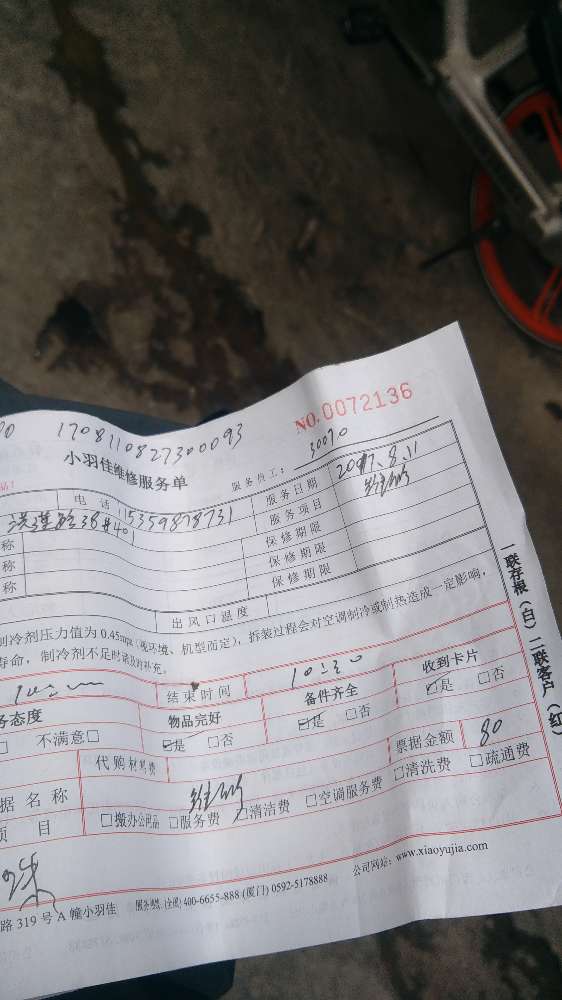 NO.0072136
1708110827300093
小羽佳维修服务单
服务员工： 30070
电话 15359878731 服务日期 2017.8.11
38#401 服务项目 维修
称 保修期限
称 保修期限
称 保修期限
出风口温度
制冷剂压力值为 0.45mpa（视环境、机型而定），拆装过程会对空调制冷或制热造成一定影响，
寿命，制冷剂不足时请及时补充。
结束时间 10:30
务态度 物品完好 备件齐全 收到卡片
□ 不满意□ ☑是 □否 ☑是 □否 ☑是 □否
代购材料费 票据金额 80
据名称 维修
项目 □搬办公用品 □服务费 ☑清洁费 □空调服务费 □清洗费 □疏通费
路 319 号 A 幢小羽佳 400-6655-888 (厦门) 0592-5178888 公司网站：www.xiaoyujia.com
一联存根（白）二联客户（红）